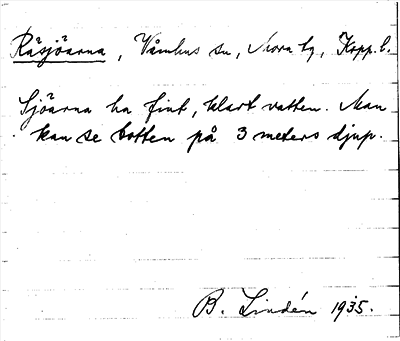 Råsjöarna, Våmhus sn, Mora tg, Kopp. l.
Sjöarna ha fint, klart vatten. Man
kan se botten på 3 meters djup.
B. Lindén 1935.